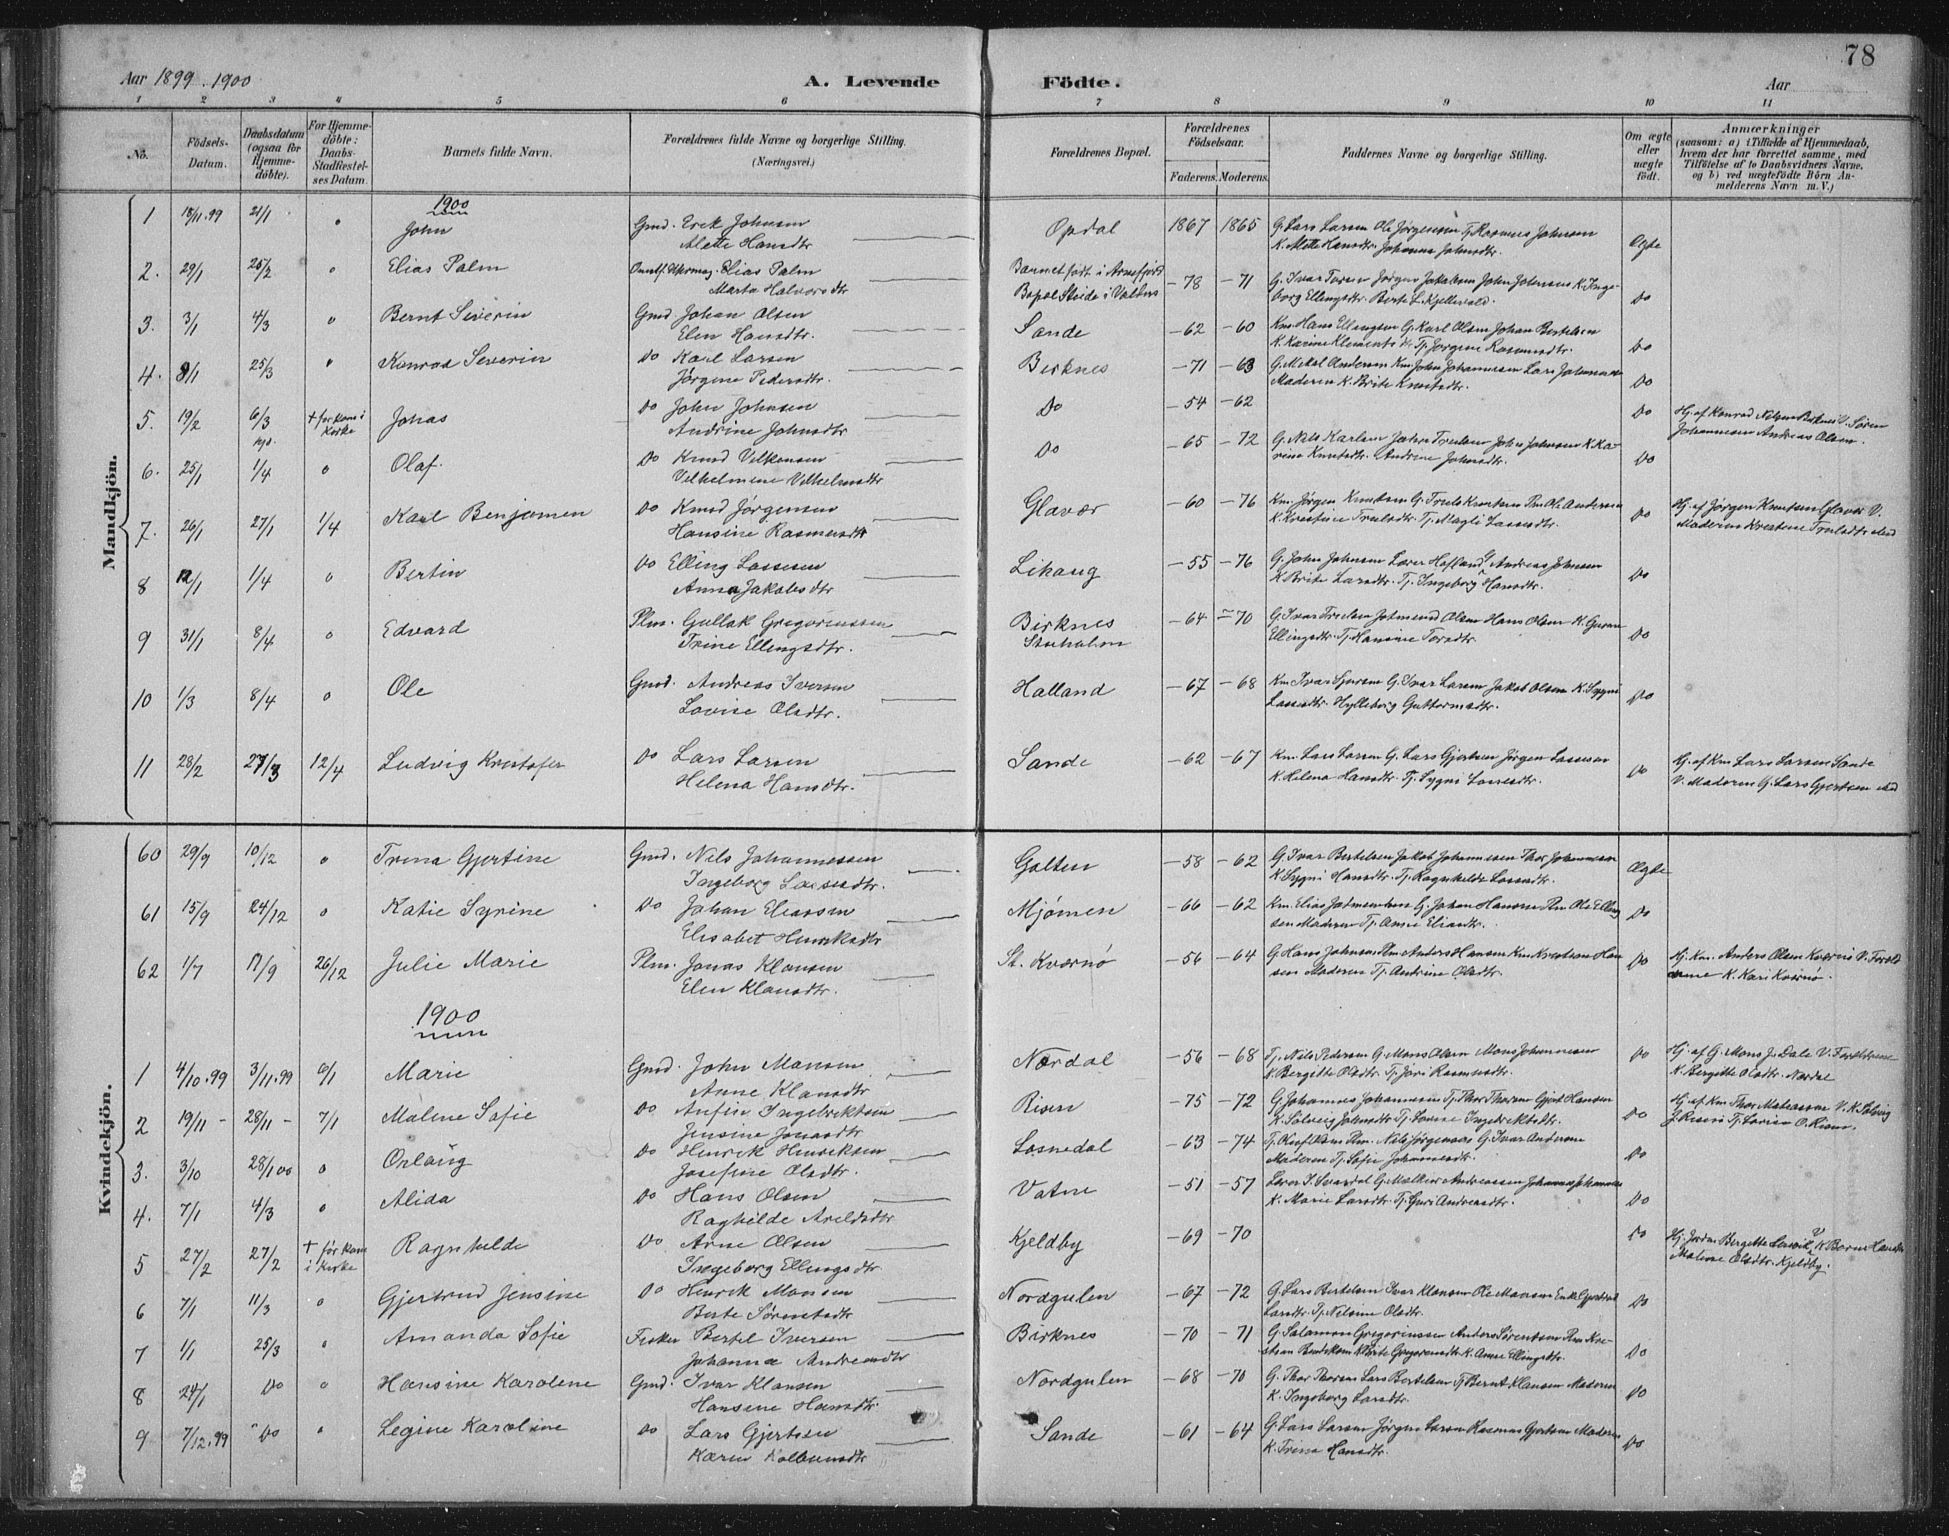 78
Aar 1899. 1900
A. Levende Födte.
Aar
1 2 3 4 5 6 7 8 9 10 11
No.
Födsels-
Datum.
Daabsdatum
(ogsaa for
Hjemme-
döbte).
For Hjemme-
döbte:
Daabs-
Stadfæstel-
ses Datum.
Barnets fulde Navn.
Forældrenes fulde Navne og borgerlige Stilling.
(Næringsvei.)
Forældrenes Bopæl.
Forældrenes
Födselsaar.
Faderens. Moderens.
Faddernes Navne og borgerlige Stilling.
Om ægte
eller
uægte
födt.
Anmærkninger
(saasom: a) i Tilfælde af Hjemmedaab,
hvem der har forrettet samme, med
Tilföielse af to Daabsvidners Navne,
og b) ved uægtefödte Börn An-
melderens Navn m. V.)
Mandkjön.
1900
1 18/11.99 21/1 0 John Gmd. Erik Johnsen Opdal 1867 1865 G. Lars Larsen Ole Jørgensen Tj. Rasmus Johnsen Ægte
Alette Hansdtr K. Mette Hansdtr. Johanna Johnsdtr.
2. 29/1 25/2 0 Elias Palm Elias Palm Barnet födt i Arnefjord -78 -71 G. Ivar Jørgen Jakobsen John Johnsen K. Inge-
Marta Halvorsdtr Bopæl i Valders borg Ellingsdtr. Berte L. Kjellevold. Do
3. 3/1 4/3 0 Bernt Severin Gmd Johan Olsen Sande -62 -60 Km. Hans Ellingsen G. Karl Olsen Johan Bertelsen
Elen Hansdtr. K. Karine Klements Tj. Jørgine Rasmusdtr. Do
4. 8/1 25/3 0 Konrad Severin Do Karl Larsen Birknes -71 -63 G. Mikal Andersen Km. John Johannesen Lars Johannesen
Jørgine Pedersdtr. Moderen K. Brite Knutsdtr. Do
5. 19/2 6/3 + før kom i Kirke Jonas Do John Johnsen Do -54 -62 Do Hj. af Konrad Nilsen Birknes V. Søren
Andrine Johnsdtr Johannesen Andreas Olsen.
6. 25/1 1/4 0 Olaf. Do Knud Vilhelmine Vilhelmsdtr Do -65 -72 G. Nils Karlsen John Johnsen K. Ka-
rine Knutsdtr. Andrine Johnsdtr. Do
7. 26/1 27/1 1/4 Karl Benjamen Do Knud Jørgensen Glavær -60 -76 Km. Jørgen Knutsen G. Truls Knutsen Andersen Hj. af Jørgen Knutsen Glavær V.
Hansine Rasmusdtr K. Kristine Trulsdtr. Tj. Magli Lassedtr. Do Moderen Kristine Trulsdtr
8 12/1 1/4 0 Bertin Do Elling Lassesen Likaug -55 -76 G. John Johnsen Lærer Hafland Andreas Johnsen
Anna Jakobsdtr K. Brite Larsdtr. Tj. Ingeborg Hansdtr. Do
9 31/1 8/4 0 Edvard Plm. Gullak Gregoriussen Birknes -64 -70 G. Ivar Olsen Hans Olsen K. Guren
Trine Ellingsdtr. Ellingsdtr. Tj. Hansine Do
10 1/3 8/4 0 Ole Gmd. Andreas Iversen Halland -67 -68 Km. Ivar G. Ivar Larsen Jakob Olsen K. Sygni
Lovise Olsdtr. Lassedtr. Hylleborg Guttormsdtr. Do
11 28/2 27/3 12/4 Ludvig Kristofer Do Lars Larsen Sande -62 -67 Km. Lars Larsen G. Lars Gjertsen Jørgen Lassesen Hj. af Km Lars Larsen Sande
Helena Hansdtr. K. Helena Hansdtr. Tj. Sygni Lassedtr. Do V. Moderen G. Lars Gjertsen
Kvindekjön.
60 29/9 10/12 0 Trina Gjertine Gmd. Nils Johannessen Galten -58 -62 G. Ivar Bertelsen Jakob Johannesen Thor Johannesen Ægte
Ingeborg Larsdtr. K. Sygni Hansdtr. Tj. Ragnhilde Lassedtr.
61 15/9 24/12 0 Katie Syrine Do Johan Eliassen Mjømen -66 -62 Km. Elias G. Johan Hansen Ole Elling
Elisabet Henriksdtr sen Moderen Tj. Anne Eliasdtr. Do
62 1/7 17/9 26/12 Julie Marie Plm. Jonas Klausen St. Kværnø -56 -64 G. Hans Johnsen Plm Anders Hansen Km. Kristian Han Do Hj. Km. Anders Olsen Kværnø V. Foræld
Elen Klausdtr. sen Moderen Tj. Andrine Olsdtr. rene K. Kari Kværnø.
1900
1 4/10.99 3/11.99 6/1 Marie Gmd. John Monsen Nordal -56 -68 Tj. Nils Pedersen G. Mons Olsen Mons Johannesen Do Hj. af G. Mons J. Dale V. Forældrene
Anne Klausdtr K. Bergitte Olsdtr. Tj. Jori Rasmusdtr. K. Bergitte Olsdtr. Nordal
2 19/11 - 28/11 - 7/1 Malene Sofie Do Anfin Ingebriktsen Risen -75 -72 G. Johannes Johannesen Tj. Thor Thorsen Gjert Hansen Hj. af Km Thor V. K. Solveig
Jensine Jonasdtr K. Solveig Johnsdtr Tj. Lovise Ingebriktsdtr. Do J. Risen Tj. Lovise O. Risen.
3. 3/10 28/1 00 0 Orlaug Do Henrik Henriksen Losnedal -63 -74 Tj. Olaf Nils Jørgensen G. Ivar Andersen
Josefine Olsdtr. Moderen Tj. Sofie Johannesdtr. Do
4. 7/1 4/3 0 Alida Do Hans Olsen Vatne -51 -57 Lærer I. Svardal G. Melkior Andreassen Johannes Johannes
Raghilde Arildsdtr K. Marie Larsdtr. Tj. Guri Andreasdtr. Do
5 27/2 27/2 + før kom i Kirke Ragnhilde Do Arne Olsen Kjeldby -69 -70 Do Hj. Jordm. Bergitte V. K. Hans
Ingeborg Ellingsdtr Malene Olsdtr. Kjeldby.
6 7/1 11/3 0 Gjertrud Jensine Do Henrik Monsen Nordgulen -67 -72 G. Lars Bertelsen Ivar Klausen Ole Monsen Enke Gjertrud
Berte Sørensdtr Larsdtr. Tj. Nilsine Olsdtr. Do
7 1/1 25/3 0 Amanda Sofie Fisker Bertil Iversen Birknes -70 -71 G. Salamon Gregoriussen Anders Sørensen Kri-
Johanna Andreasdtr stian K Brite Gregoriusdtr K. Anne Ellingsdtr. Do
8 24/1 Do 0 Hansine Karolene Gmd. Ivar Klausen Nordgulen -68 -70 G. Thor Thorsen Lars Bertelsen Tj. Bernt Klausen Moderen
Hansine Hansdtr. K. Ingeborg Larsdtr. Do
9 7/12.99 Do 0 Legine Karoline Do Lars Gjertsen Sande -61 -64 G. Lars Larsen Jørgen Larsen Rasmus Gjertsen Moderen
Karen Kolbensdtr K. Trine Hansdtr. Do